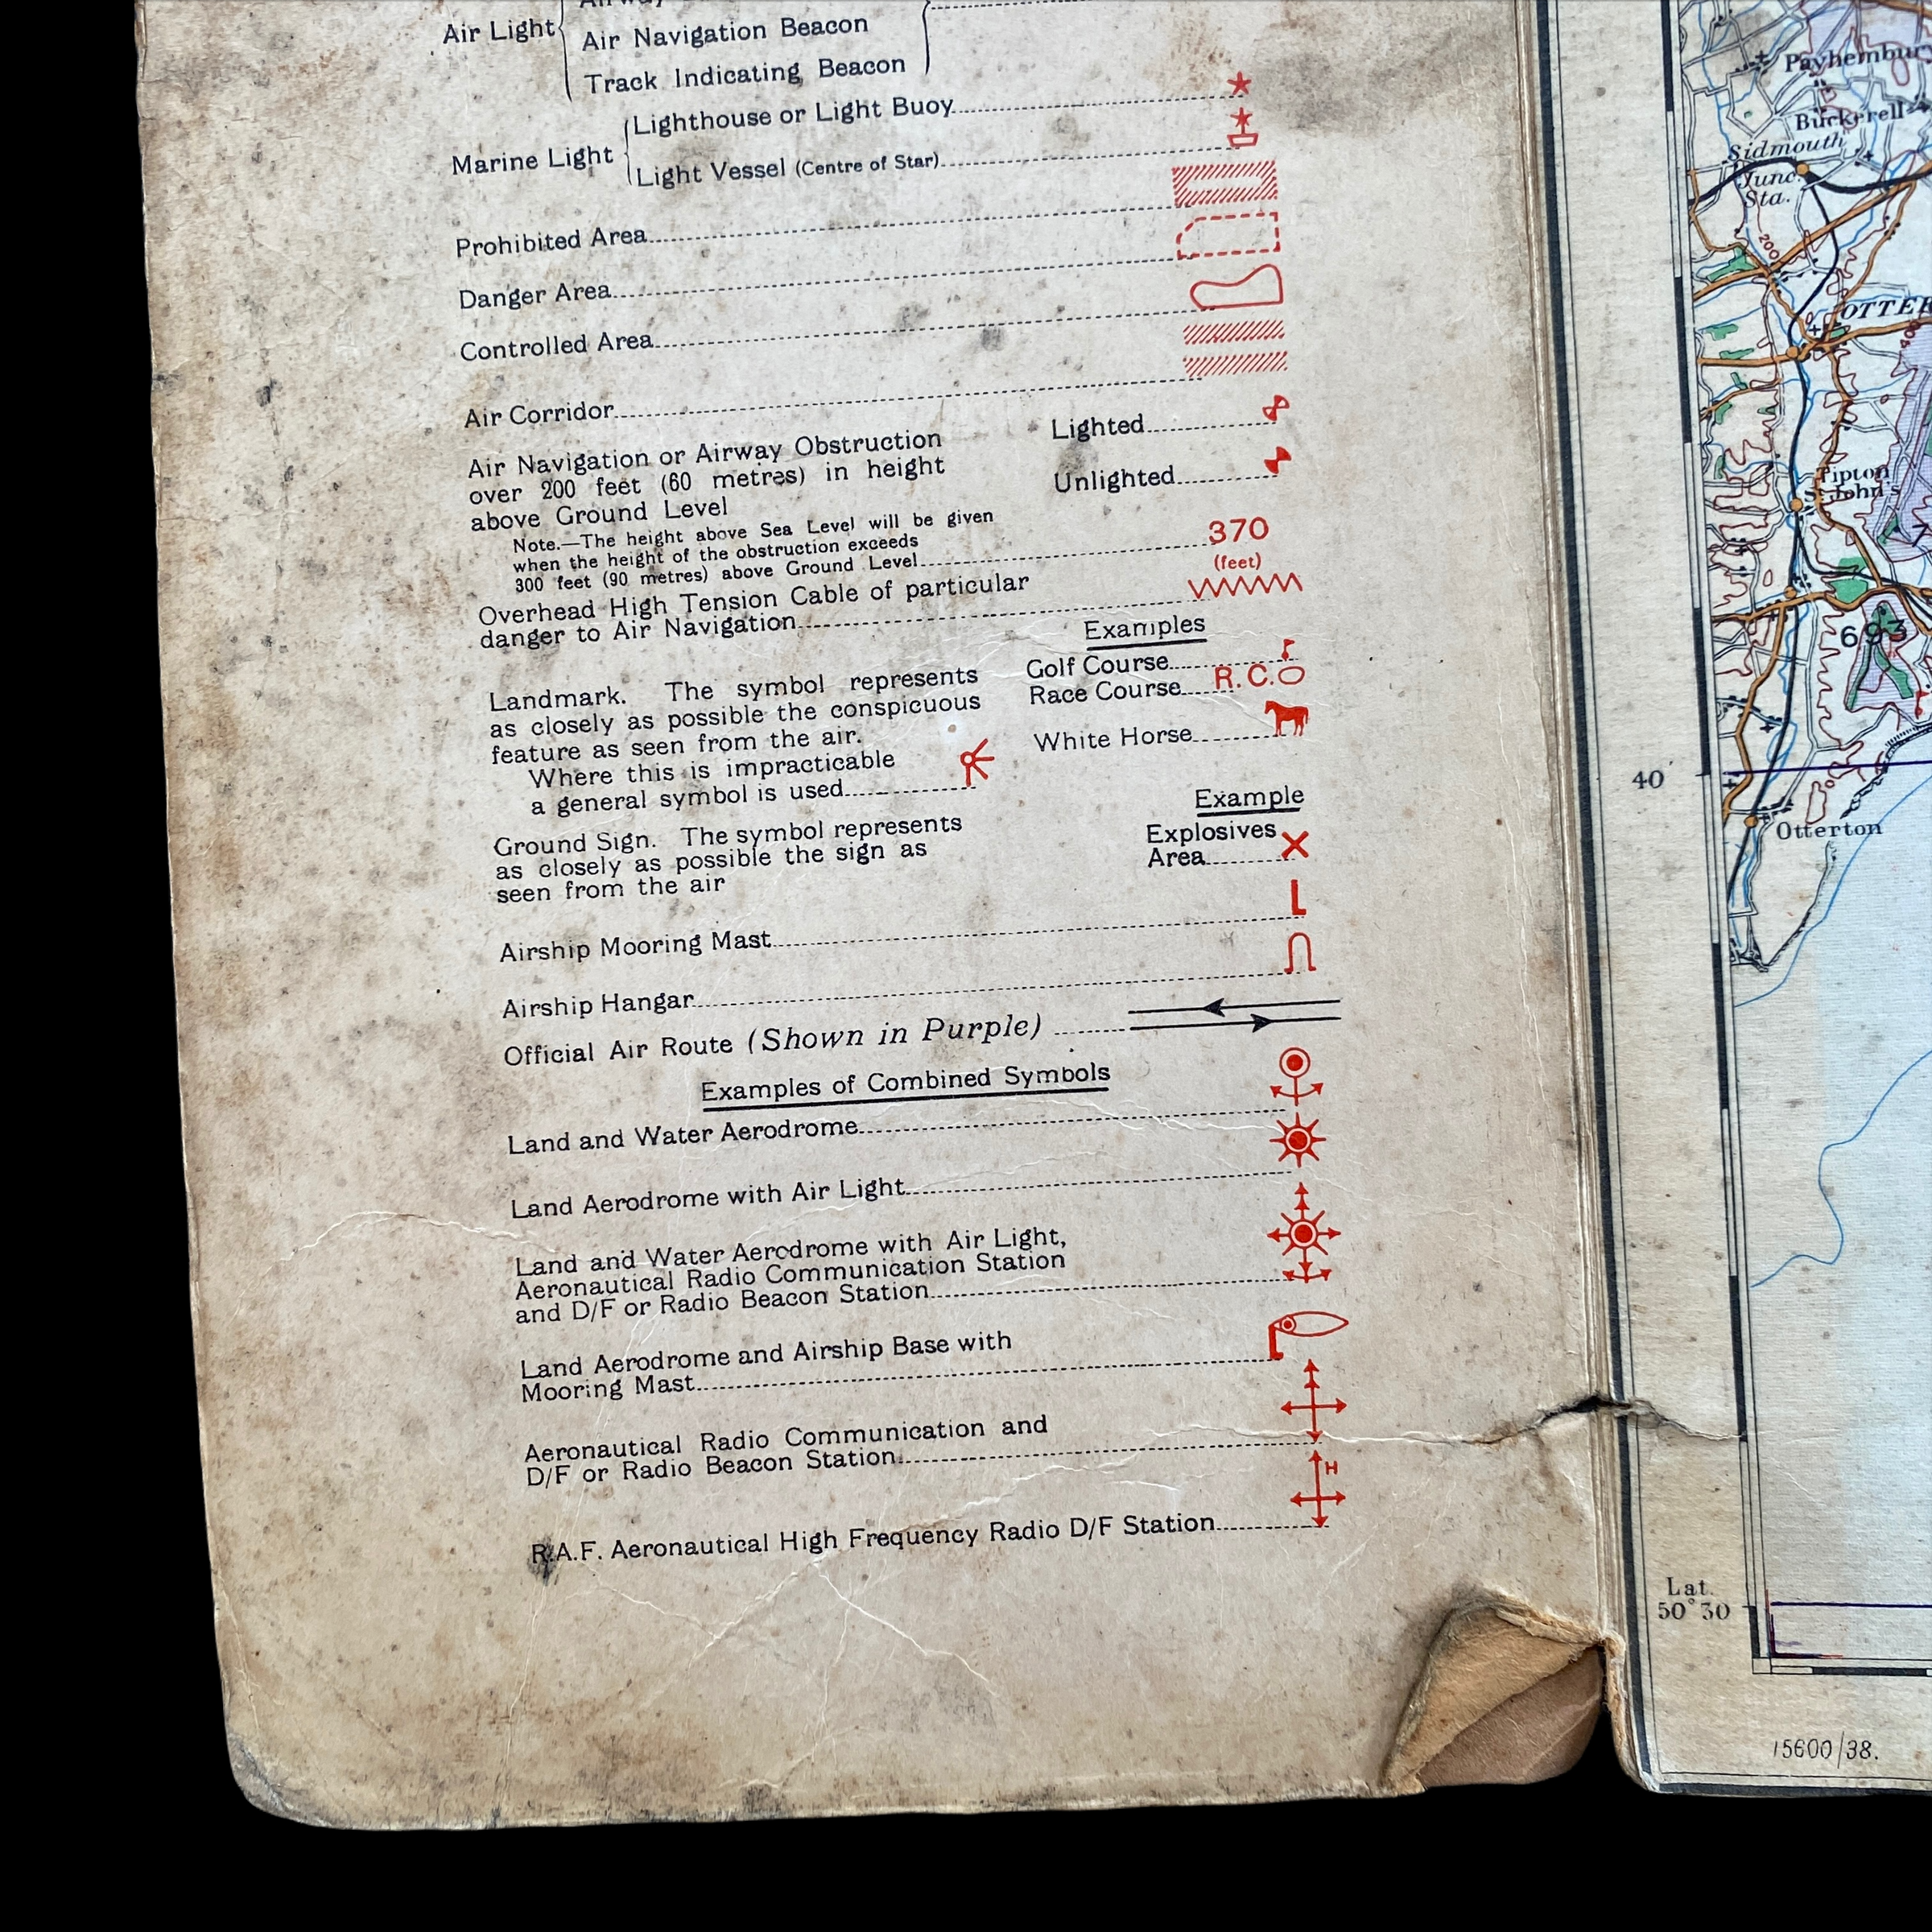 Air Light
Air Navigation Beacon
Track Indicating Beacon
Marine Light
Lighthouse or Light Buoy
Light Vessel (Centre of Star)
Prohibited Area
Danger Area
Controlled Area
Air Corridor
Air Navigation or Airway Obstruction
over 200 feet (60 metres) in height
above Ground Level
Lighted
Unlighted
Note.—The height above Sea Level will be given
when the height of the obstruction exceeds
300 feet (90 metres) above Ground Level
370
(feet)
Overhead High Tension Cable of particular
danger to Air Navigation
Examples
Landmark. The symbol represents
as closely as possible the conspicuous
feature as seen from the air.
Where this is impracticable
a general symbol is used
Golf Course
Race Course R.C.
White Horse
Example
Ground Sign. The symbol represents
as closely as possible the sign as
seen from the air
Explosives
Area
Airship Mooring Mast
Airship Hangar
Official Air Route (Shown in Purple)
Examples of Combined Symbols
Land and Water Aerodrome
Land Aerodrome with Air Light
Land and Water Aerodrome with Air Light,
Aeronautical Radio Communication Station
and D/F or Radio Beacon Station
Land Aerodrome and Airship Base with
Mooring Mast
Aeronautical Radio Communication and
D/F or Radio Beacon Station
H
R.A.F. Aeronautical High Frequency Radio D/F Station
Payhembur
Buckerell
Sidmouth
Junc.
Sta.
200
OTTE
400
Tipton
St. John's
693
40
Otterton
Lat.
50°30
15600/38.